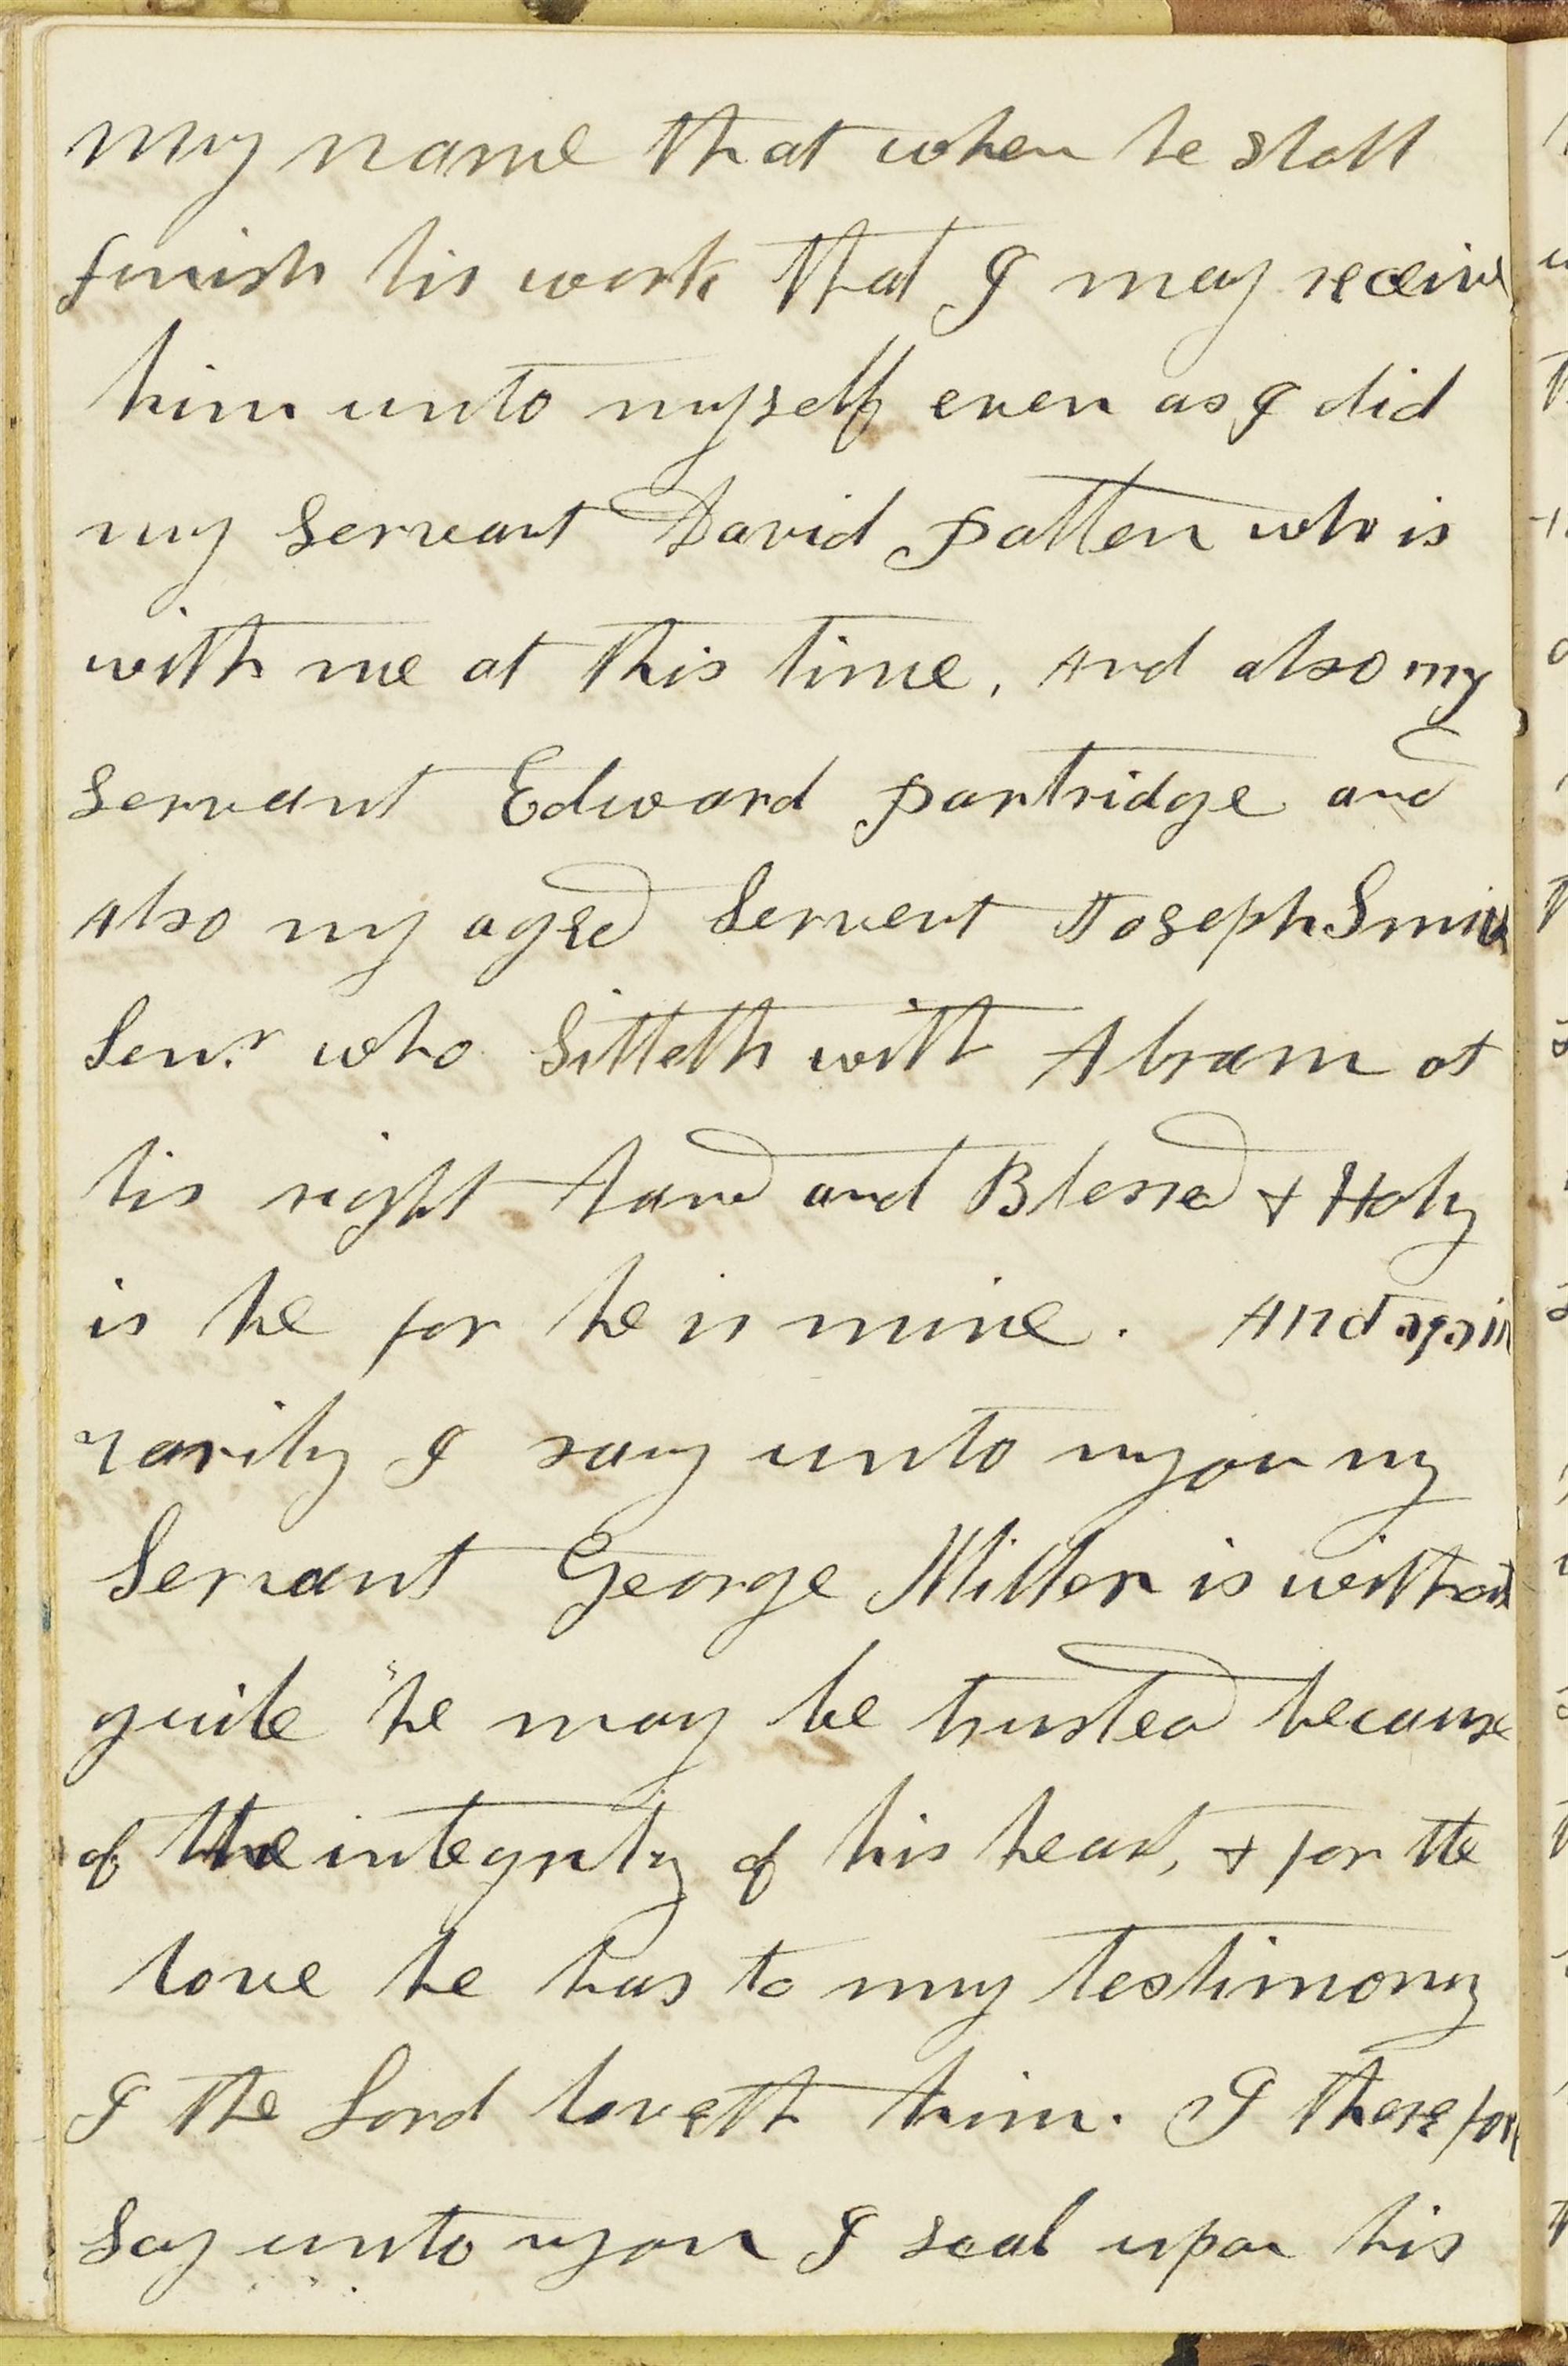 my name that when he shall
finish his work that I may receive
him unto myself even as I did
my Servant David Patten who is
with me at this time, And also my
Servant Edward Partridge and
Also my aged Servent Joseph Smith
Senr. who Sitteth with Abram at
his right hand and Blessed & Holy
is he for he is mine. And again
varily I say unto you my
Servant George Miller is without
guile he may be trusted because
of the integrity of his heart, & for the
love he has to my testimony
I the Lord loveth him. I therefore
Say unto you I seal upon his